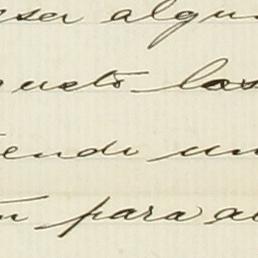 ser algu
usto las
endo un
para a